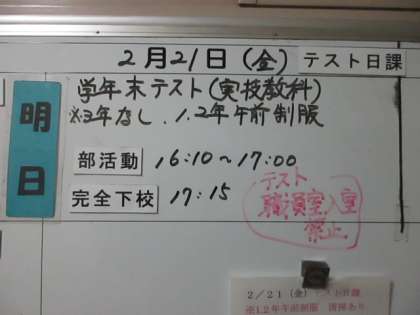 2月21日(金) テスト日課
明日
学年末テスト(実技教科)
※3年なし、1.2年午前制服
部活動 16:10~17:00
完全下校 17:15
テスト
職員室入室
禁止
2/21(金)テスト日課
※1.2年午前制服